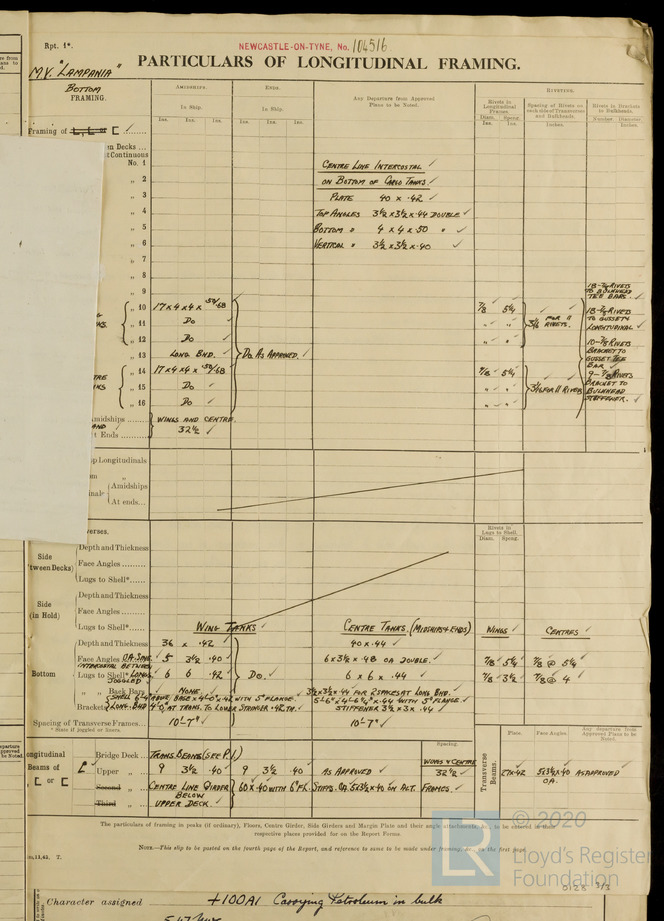 Rpt. 1*.
NEWCASTLE-ON-TYNE, No. 104516
PARTICULARS OF LONGITUDINAL FRAMING.
M.V. "LAMPANIA"
BOTTOM
FRAMING.
AMIDSHIPS.
ENDS.
In Ship.
In Ship.
Any Departure from Approved
Plans to be Noted.
RIVETING.
Rivets in
Longitudinal
Frames.
Spacing of Rivets on
each side of Transverses
and Bulkheads.
Rivets in Brackets
to Bulkheads.
Ins. Ins. Ins. Ins. Ins. Ins.
Diam. Spcng.
Ins. Ins.
Inches.
Number. Diameter
Inches.
Framing of L, L or [ ✓
n Decks ...
Continuous
No. 1
CENTRE LINE INTERCOSTAL ✓
„ 2
ON BOTTOM OF CARGO TANKS ✓
„ 3
PLATE 40 × .42 ✓
„ 4
TOP ANGLES 3½ × 3½ × .44 DOUBLE ✓
„ 5
BOTTOM " 4 × 4 × .50 " ✓
„ 6
VERTICAL " 3½ × 3½ × .40 ✓
„ 7
„ 8
„ 9
TO BULKHEAD
TEE BARS. ✓
„ 10 17 × 4 × 4 × .50/.68 7/8 5¼
„ 11 Do ✓
TO GUSSETS
LONGITUDINAL ✓
FOR 11
RIVETS.
„ 12 Do ✓
„ 13 LONG BHD. ✓ Do AS APPROVED. ✓
BRACKET TO
GUSSET TEE
BAR ✓
„ 14 17 × 4 × 4 × .50/.68 7/8 5¼
„ 15 Do ✓
BRACKET TO
BULKHEAD
STIFFENER. ✓
„ 16 Do ✓
Amidships
t Ends ......
WINGS AND CENTRE
32½ ✓
p Longitudinals
Amidships
At ends...
verses.
Rivets in
Lugs to Shell.
Diam. Spcng.
Side
('tween Decks)
Depth and Thickness
Face Angles ......
Lugs to Shell*......
Side
(in Hold)
Depth and Thickness
Face Angles ......
Lugs to Shell*......
WING TANKS
CENTRE TANKS. (MIDSHIPS & ENDS)
WINGS ✓
CENTRES ✓
Bottom
Depth and Thickness 36 × .42 ✓ 40 × .44 ✓
Face Angles 5 3½ .40 6 × 3½ × .48 OA DOUBLE. ✓ 7/8 5¼ 7/8 @ 5¼
INTERCOSTAL BETWEEN
Lugs to Shell* LONGS. 6 6 .42 Do. 6 × 6 × .44 ✓ 7/8 3½ 7/8 @ 4
JOGGLED
„ „ Back Bars NONE.
3½ × 3½ × .44 FOR 2 SPACES AT LONG BHD.
WITH 5" FLANGE.
Brackets
STIFFENER 3½ × 3 × .44 ✓
Spacing of Transverse Frames... 10'-7" ✓ 10'-7" ✓
* State if joggled or liners.
ongitudinal
Beams of
L or [
Bridge Deck ... TRANS. BEAMS (SEE P.1)
Spacing.
WINGS & CENTRE
Upper „ 9 3½ .40 9 3½ .40 AS APPROVED ✓ 32½ ✓
Second „ CENTRE LINE GIRDER 60 × .40 WITH 6" FL. STIFFS. OA 5×3½×.40 ON ALT. FRAMES.
BELOW
Third „ UPPER DECK.
Transverse Beams.
Plate.
Face Angles.
Any departure from
Approved Plans to be
Noted.
27 × .42 5×3½×.40 AS APPROVED
OA.
The particulars of framing in peaks (if ordinary), Floors, Centre Girder, Side Girders and Margin Plate and their angle attachments, &c., to be entered in their
respective places provided for on the Report Forms.
NOTE.—This slip to be posted on the fourth page of the Report, and reference to same to be made under framing, &c., on the first page.
Character assigned +100A1 Carrying Petroleum in bulk
© 2020
Lloyd's Register
Foundation
LR
0128 3/3